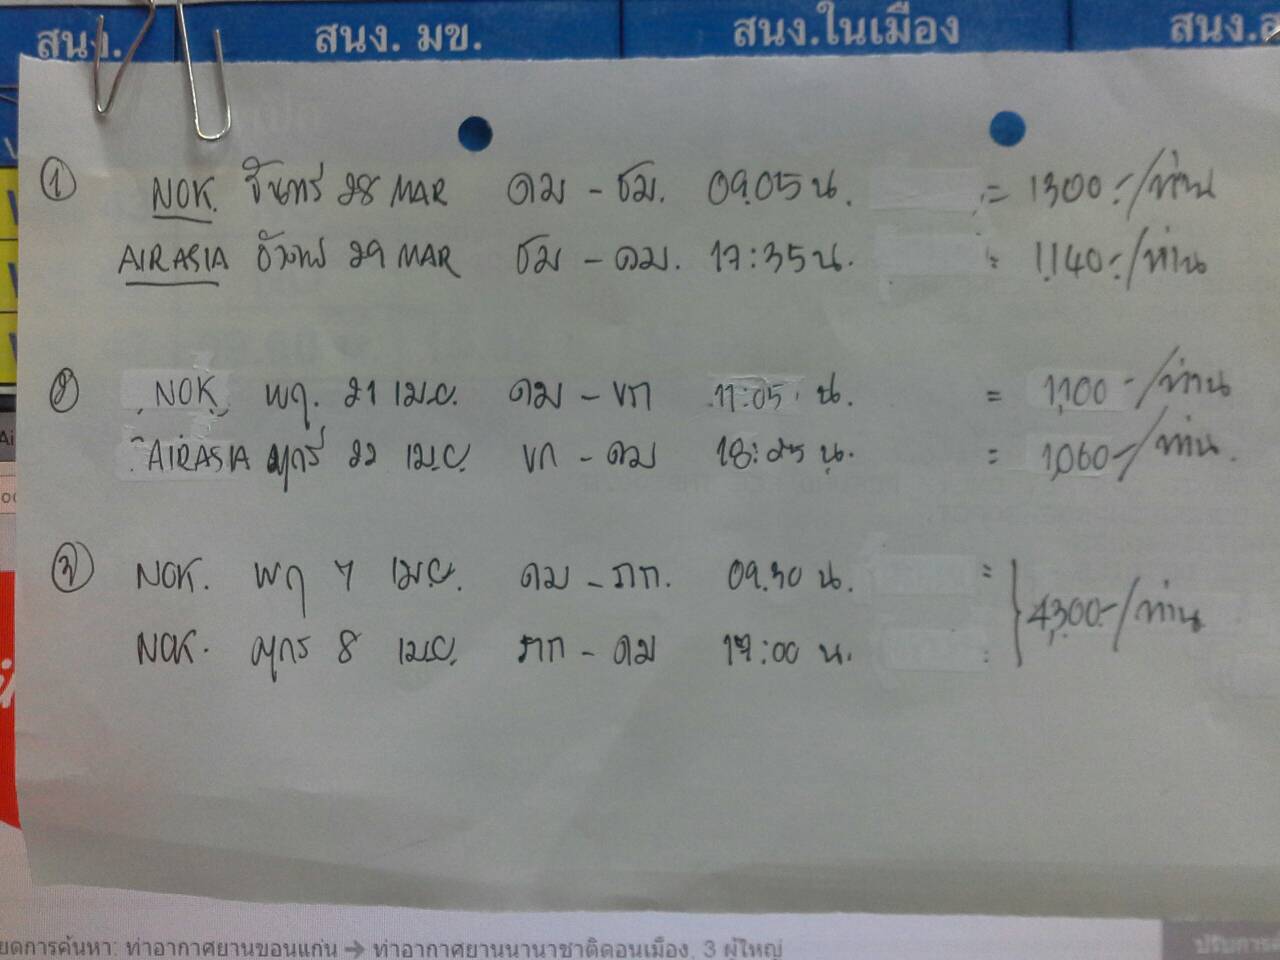 สนง. สนง. มข. สนง.ในเมือง สนง.อ
① NOK. จันทร์ 28 MAR ดม - ชม. 09.05 น. = 1300.-/ท่าน
AIRASIA อังคาร 29 MAR ชม - ดม. 17:35 น. = 1,140.-/ท่าน
② NOK พฤ. 21 เม.ย. ดม - ขก 11:05 น. = 1,100.-/ท่าน
AIRASIA ศุกร์ 22 เม.ย. ขก - ดม 18:25 น. = 1,060.-/ท่าน.
③ NOK. พฤ 7 เม.ย. ดม - ภก. 09.30 น. = 4,300.-/ท่าน
NOK. ศุกร์ 8 เม.ย. ภก - ดม 17:00 น.
ยดการค้นหา: ท่าอากาศยานขอนแก่น → ท่าอากาศยานนานาชาติดอนเมือง, 3 ผู้ใหญ่